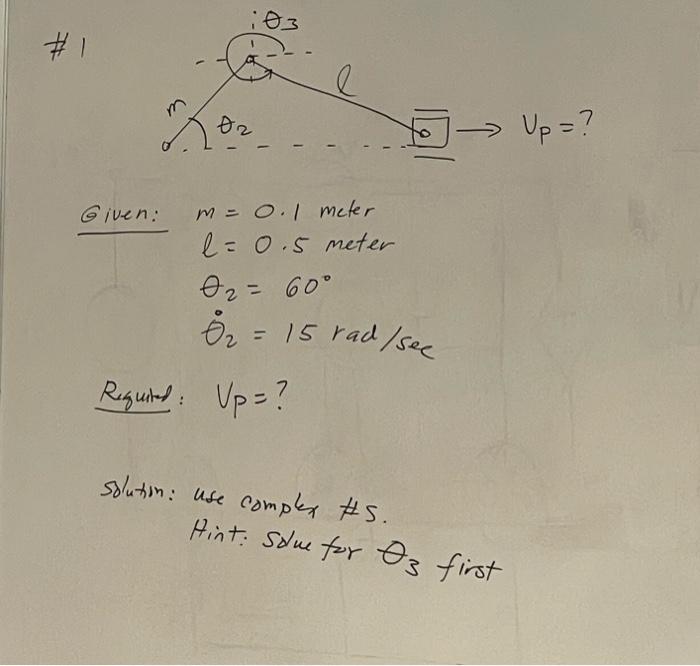 #1
θ3
l
m
θ2
→ Vp = ?
Given: m = 0.1 meter
l = 0.5 meter
θ2 = 60°
θ̇2 = 15 rad/sec
Required: Vp = ?
Solution: use complex #s.
Hint: Solve for θ3 first